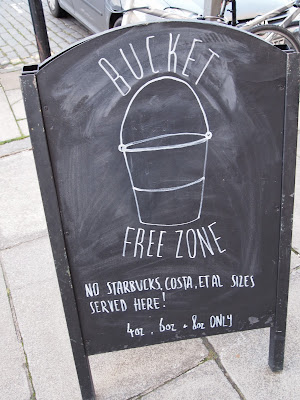 BUCKET
FREE ZONE
NO STARBUCKS, COSTA, ET AL SIZES
SERVED HERE!
4oz, 6oz + 8oz ONLY